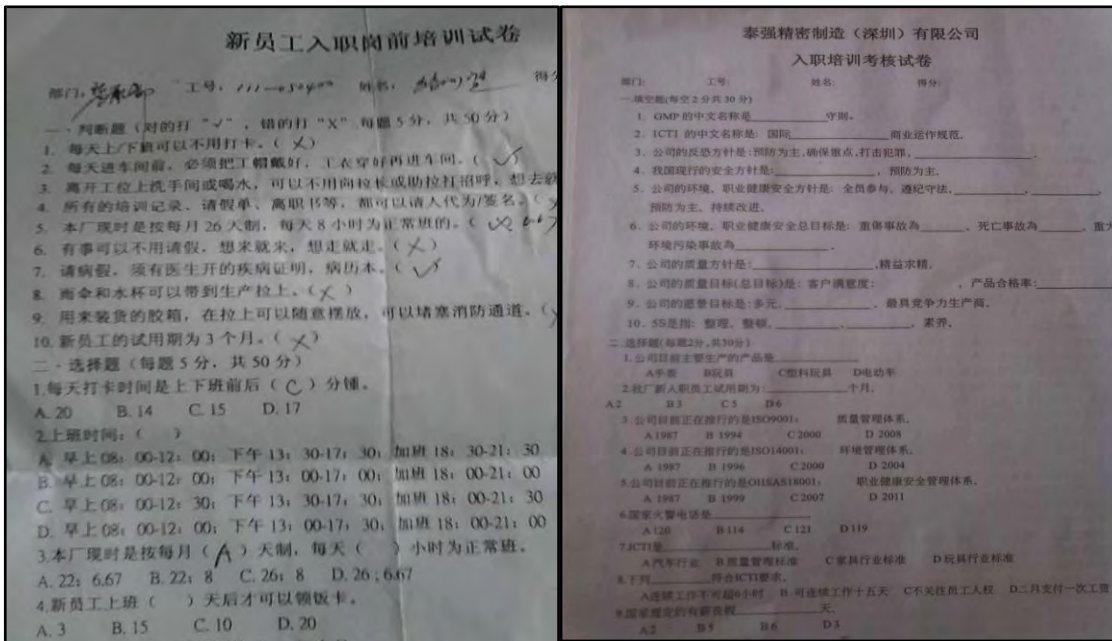 新员工入职岗前培训试卷
部门: 工号: 111-050400 姓名: 得分
一·判断题（对的打“√”，错的打“X”每题5分，共50分）
1. 每天上/下班可以不用打卡。(X)
2. 每天进车间前，必须把工帽戴好，工衣穿好再进车间。(√)
3. 离开工位上洗手间或喝水，可以不用向拉长或助拉打招呼，想去就
4. 所有的培训记录、请假单、离职书等，都可以请人代为/签名。(
5. 本厂现时是按每月26天制，每天8小时为正常班的。(
6. 有事可以不用请假，想来就来，想走就走。(X)
7. 请病假，须有医生开的疾病证明，病历本。(√)
8. 雨伞和水杯可以带到生产拉上。(X)
9. 用来装货的胶箱，在拉上可以随意摆放，可以堵塞消防通道。(
10. 新员工的试用期为3个月。(X)
二·选择题（每题5分，共50分）
1.每天打卡时间是上下班前后（C）分锺。
A. 20 B. 14 C. 15 D. 17
2.上班时间:（ ）
A. 早上08: 00-12: 00; 下午13: 30-17: 30; 加班18: 30-21: 30
B. 早上08: 00-12: 00; 下午13: 00-17: 00; 加班18: 00-21: 00
C. 早上08: 00-12: 30; 下午13: 30-17: 30; 加班18: 00-21: 30
D. 早上08: 00-12: 00; 下午13: 00-17: 30; 加班18: 00-21: 00
3.本厂现时是按每月（A）天制，每天（ ）小时为正常班。
A. 22; 6.67 B. 22; 8 C. 26; 8 D. 26 ; 6.67
4.新员工上班（ ）天后才可以领饭卡。
A. 3 B. 15 C. 10 D. 20
泰强精密制造（深圳）有限公司
入职培训考核试卷
部门: 工号: 姓名: 得分:
一.填空题(每空2分共30分)
1. GMP的中文名称是________守则。
2. ICTI的中文名称是: 国际________商业运作规范。
3. 公司的反恐方针是:预防为主,确保重点,打击犯罪,________.
4. 我国现行的安全方针是:________, 预防为主.
5. 公司的环境、职业健康安全方针是: 全员参与、遵纪守法,________,________,
预防为主、持续改进.
6. 公司的环境、职业健康安全总目标是: 重伤事故為______、死亡事故為______, 重大
环境污染事故為________.
7. 公司的质量方针是:________,精益求精.
8. 公司的质量目标(总目标)是: 客户满意度:________, 产品合格率:________
9. 公司的愿景目标是:多元,________, 最具竞争力生产商.
10. 5S是指: 整理、整顿,________,________、素养.
二.选择题(每题2分,共30分)
1.公司目前主要生产的产品是________
A手表 B玩具 C塑料玩具 D电动车
2.我厂新入职员工试用期为:________个月.
A2 B3 C5 D6
3.公司目前正在推行的是ISO9001: 质量管理体系.
A 1987 B 1994 C 2000 D 2008
4.公司目前正在推行的是ISO14001: 环境管理体系.
A 1987 B 1996 C 2000 D 2004
5.公司目前正在推行的是OHSAS18001: 职业健康安全管理体系.
A 1987 B 1999 C 2007 D 2011
6.国家火警电话是________
A 120 B 114 C 121 D 119
7.ICTI是________标准.
A汽车行业 B质量管理标准 C家具行业标准 D玩具行业标准
8.下列________符合ICTI要求.
A连续工作不可超6小时 B 可连续工作十五天 C不关注员工人权 D二月支付一次工资
9.国家规定的有薪丧假________天.
A2 B5 B6 D3